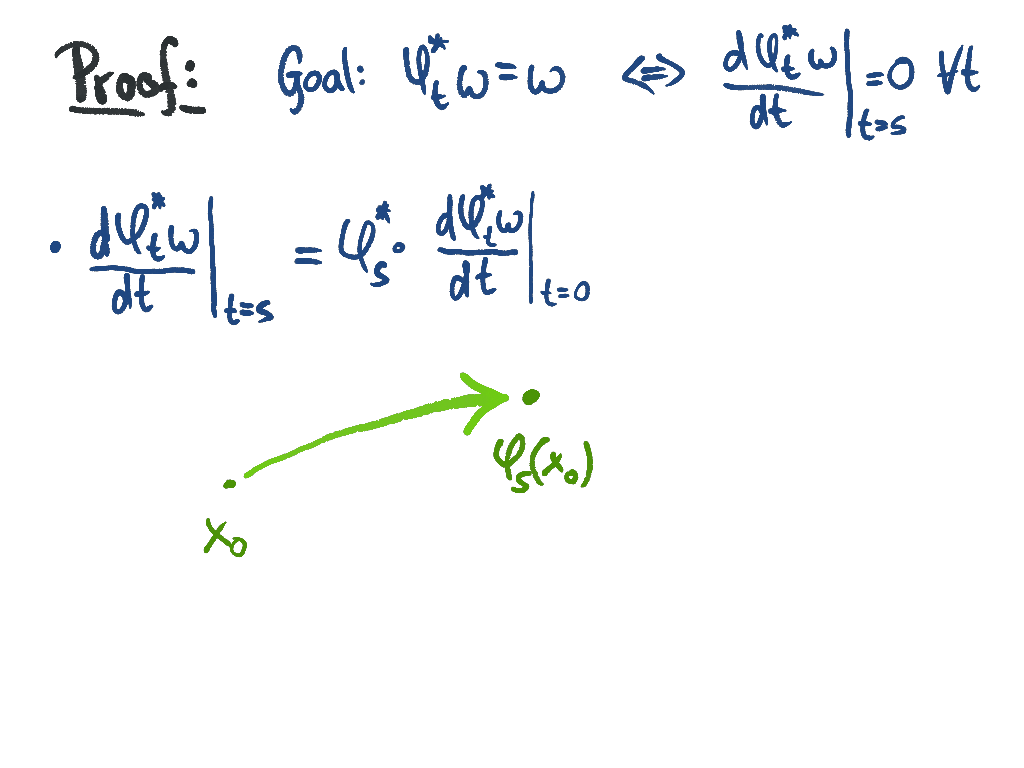 Proof: Goal: φₜ*ω = ω ⇔ dφₜ*ω/dt |ₜ₌ₛ = 0 ∀t
· dφₜ*ω/dt |ₜ₌ₛ = φₛ* · dφₜ*ω/dt |ₜ₌₀
φₛ(x₀)
x₀